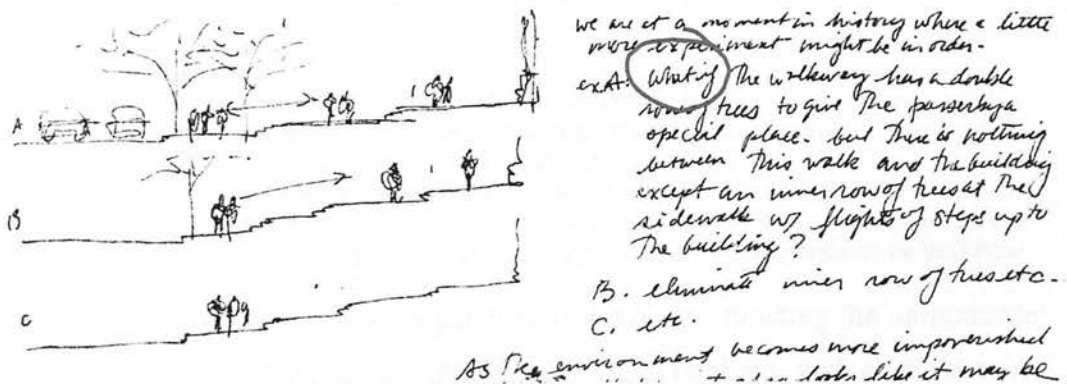 we are at a moment in history where a little
more experiment might be in order -
ex A. What if The walkway has a double
row of trees to give The passerby a
special place. but There is nothing
between This walk and the building
except an inner row of trees at The
sidewalk w/ flights of steps up to
The building?
B. eliminate inner row of trees etc -
C. etc.
As The environment becomes more impoverished
looks like it may be
A
B
C